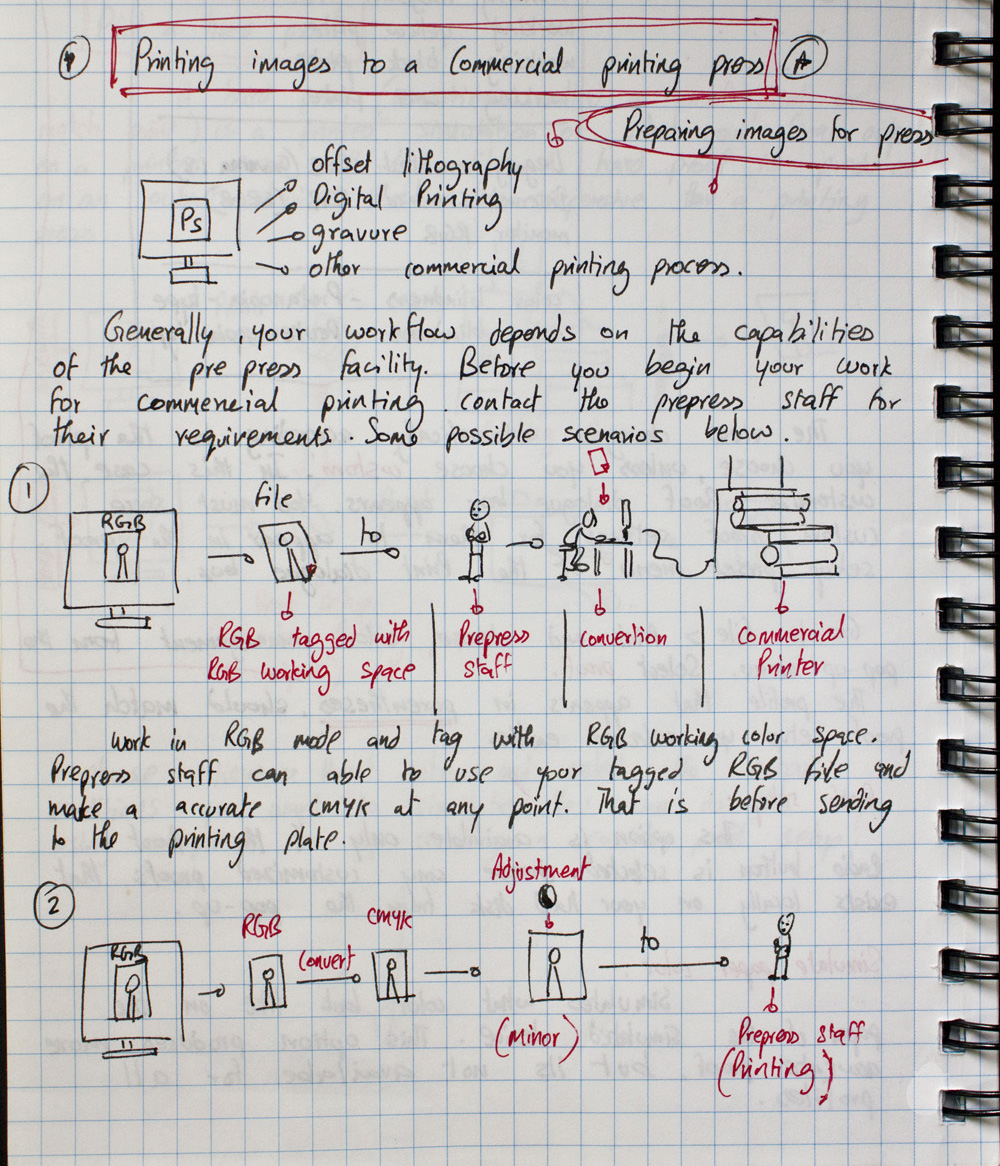 Printing images to a Commercial printing press A
Preparing images for press
Ps
offset lithography
Digital Printing
gravure
other commercial printing process.
Generally, your workflow depends on the capabilities
of the pre press facility. Before you begin your work
for commencial printing. contact the prepress staff for
their requirements. Some possible scenarios below.
1
RGB
file
to
RGB tagged with
RGB working space
Prepress
staff
convertion
Commercial
Printer
work in RGB mode and tag with RGB working color space.
Prepress staff can able to use your tagged RGB file and
make a accurate cmyk at any point. That is before sending
to the printing plate.
2
RGB
RGB
Convert
cmyk
Adjustment
(Minor)
to
Prepress staff
(Printing)